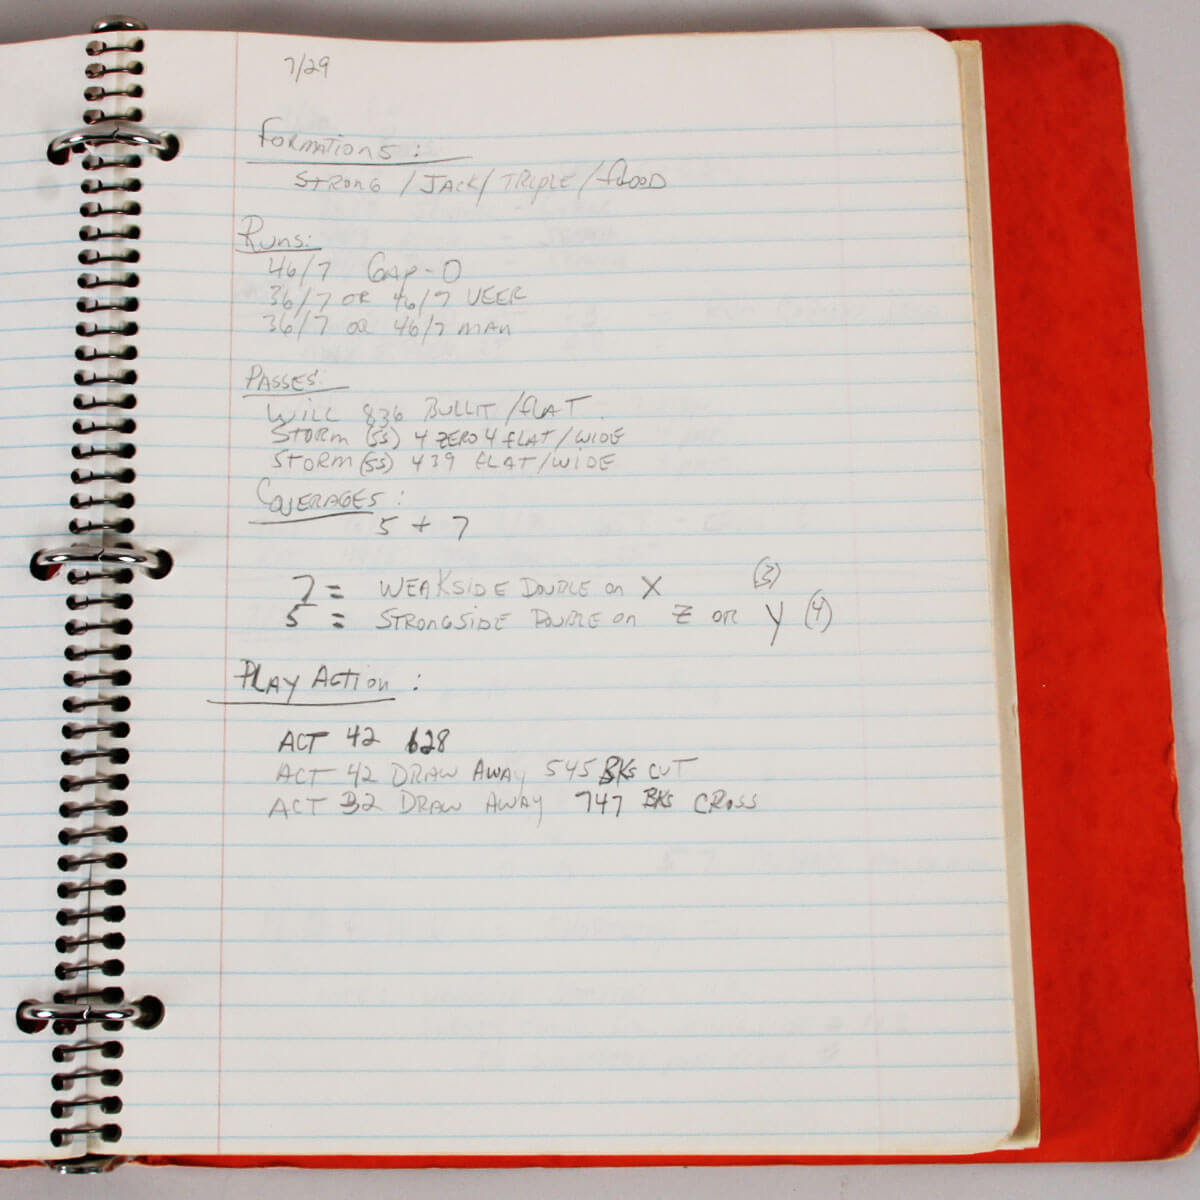 7/29
Formations:
Strong / Jack / Triple / flood
Runs:
46/7 Gap-O
36/7 or 46/7 veer
36/7 or 46/7 man
Passes:
Will 836 Bullit / flat.
Storm (SS) 4 zero 4 flat / wide
Storm (SS) 439 flat / wide
Coverages:
5 + 7
7 = Weakside Double on X (3)
5 = Strongside Double on Z or Y (4)
Play Action:
Act 42 628
Act 42 Draw Away 545 Bks cut
Act 32 Draw Away 747 Bks Cross